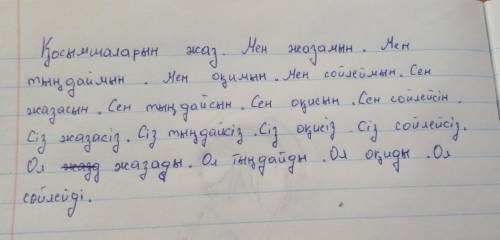 Қосымшаларын жаз. Мен жазамын. Мен
тыңдаймын. Мен оқимын. Мен сөйлеймын. Сен
жазасын. Сен тыңдайсын. Сен оқисын. Сен сөйлейсін.
Сіз жазасіз. Сіз тыңдайсіз. Сіз оқисіз. Сіз сөйлейсіз.
Ол жазады. Ол тыңдайды. Ол оқиды. Ол
сөйлейді.